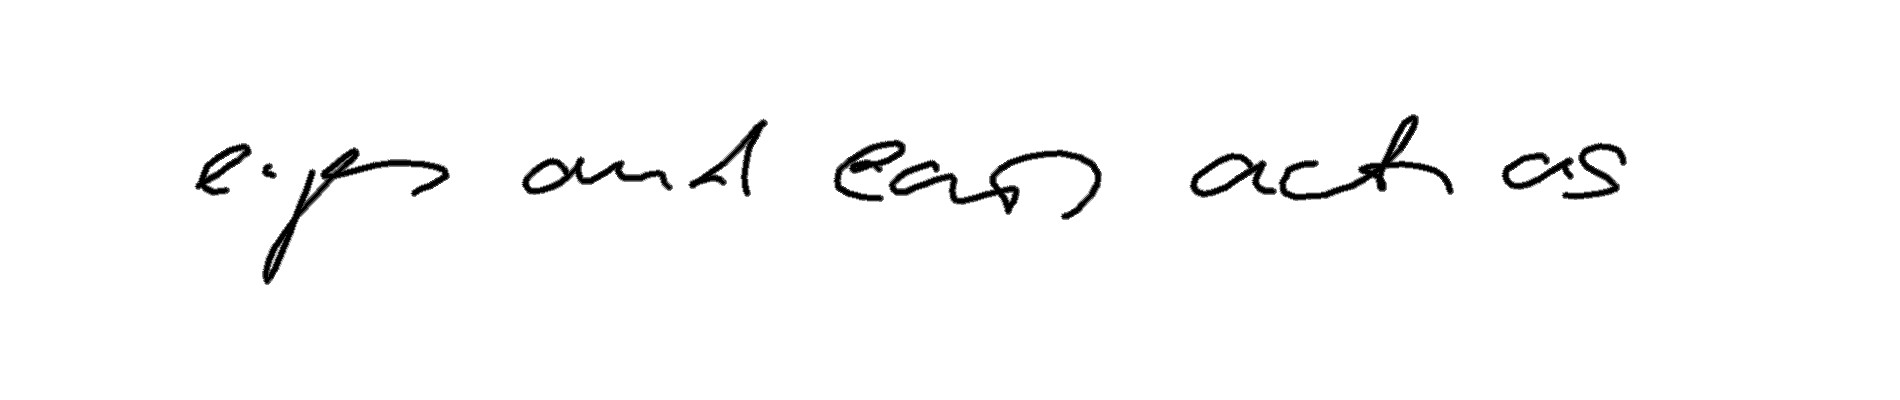 eyes and ears act as